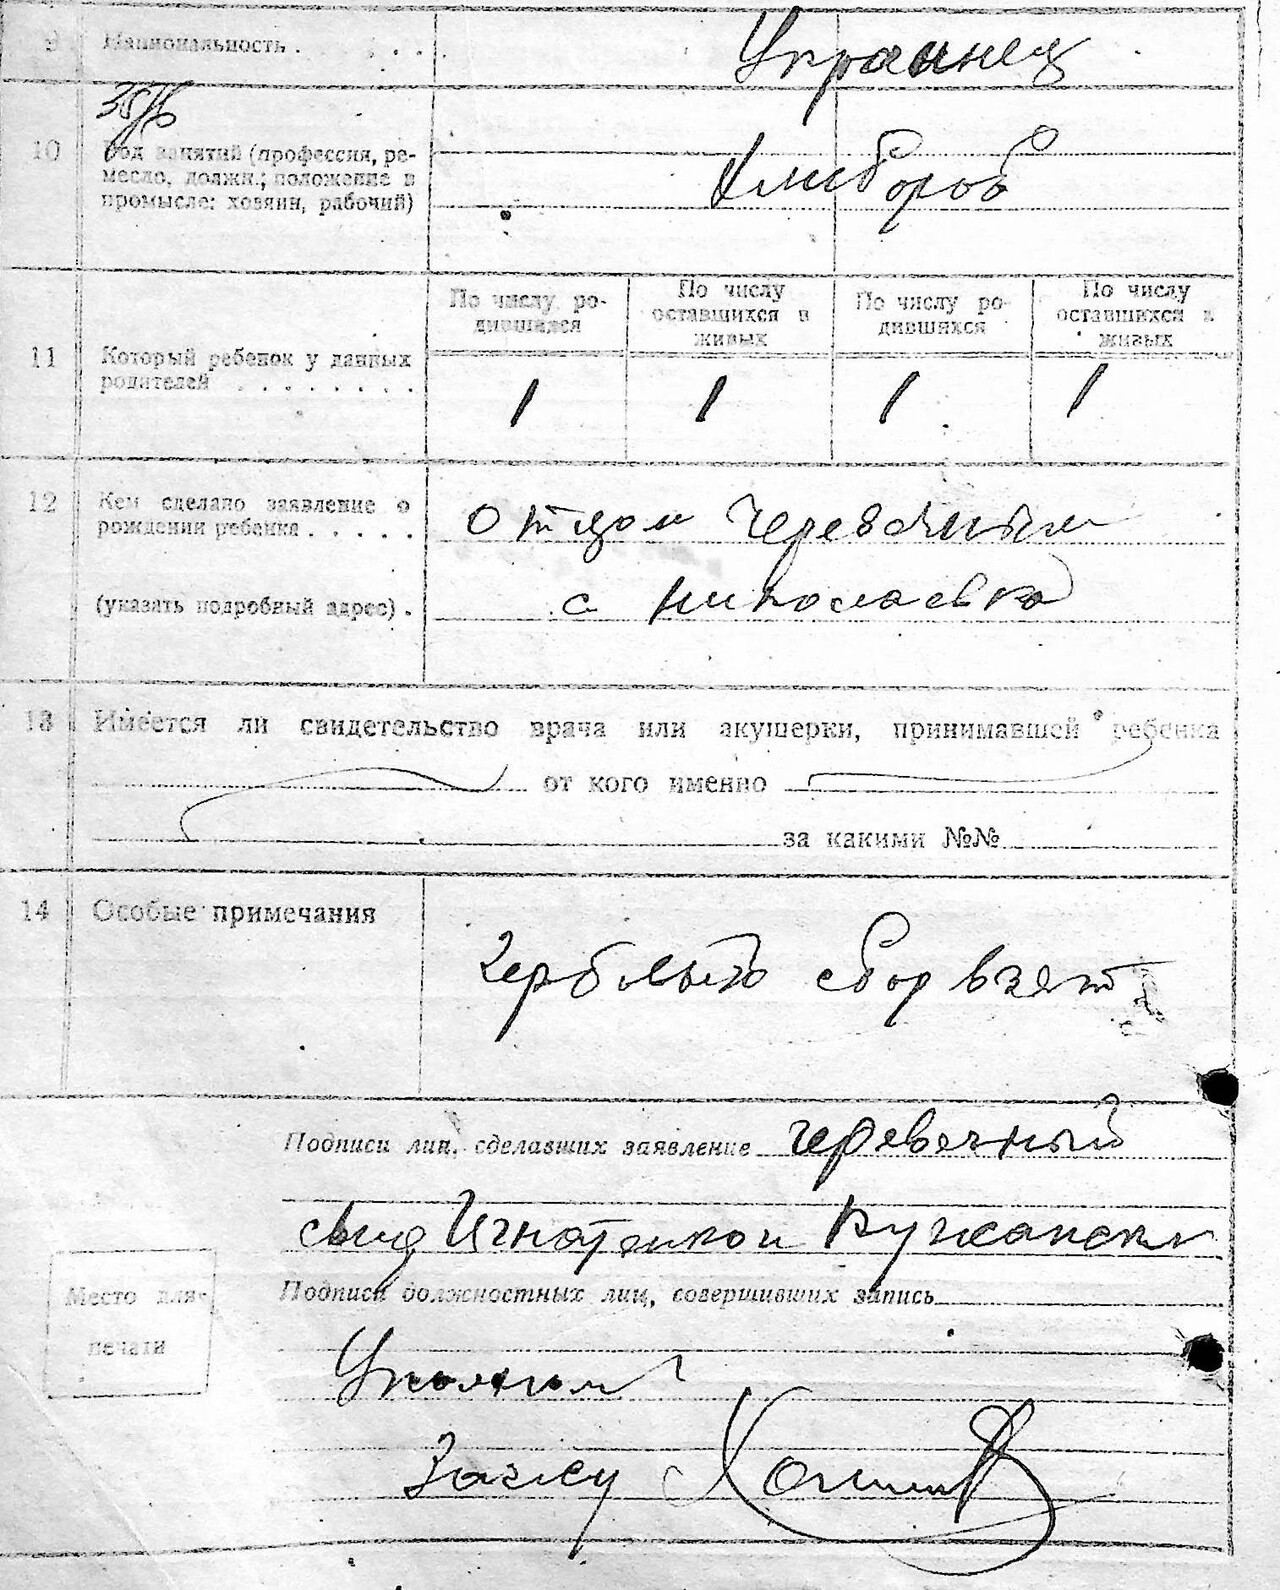 9 Национальность . . . . . Украинец
10 Род занятий (профессия, ре-
месло, должн.; положение в
промысле: хозяин, рабочий)
Хлибороб
По числу ро-
дившихся
По числу
оставшихся в
живых
По числу ро-
дившихся
По числу
оставшихся в
живых
11 Который ребенок у данных
родителей . . . . . . . .
1 1 1 1
12 Кем сделано заявление о
рождении ребенка . . . . .
отцом Черевачным
(указать подробный адрес) .
с Николаевка
13 Имеется ли свидетельство врача или акушерки, принимавшей ребенка
от кого именно
за какими №№
14 Особые примечания
Гербовый сбор взят
Подписи лиц, сделавших заявление Черевачный
свид Игнатенко и
Место для
печати
Подписи должностных лиц, совершивших запись